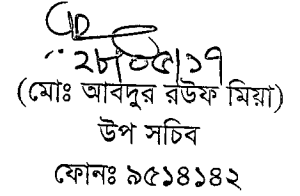 ২৮/০৫/১৭
(মোঃ আবদুর রউফ মিয়া)
উপ সচিব
ফোনঃ ৯৫১৪১৪২